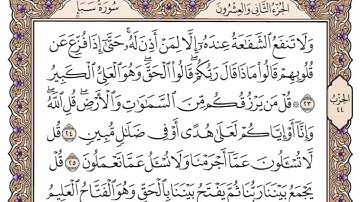 الجزء الثاني والعشرون سورة سبإ
وَلَا تَنفَعُ ٱلشَّفَٰعَةُ عِندَهُۥٓ إِلَّا لِمَنْ أَذِنَ لَهُۥۚ حَتَّىٰٓ إِذَا فُزِّعَ عَن
قُلُوبِهِمْ قَالُوا۟ مَاذَا قَالَ رَبُّكُمْۖ قَالُوا۟ ٱلْحَقَّۖ وَهُوَ ٱلْعَلِىُّ ٱلْكَبِيرُ
٢٣ ۞ قُلْ مَن يَرْزُقُكُم مِّنَ ٱلسَّمَٰوَٰتِ وَٱلْأَرْضِۖ قُلِ ٱللَّهُۖ
الحزب ٤٤
وَإِنَّآ أَوْ إِيَّاكُمْ لَعَلَىٰ هُدًى أَوْ فِى ضَلَٰلٍ مُّبِينٍ ٢٤ قُل
لَّا تُسْـَٔلُونَ عَمَّآ أَجْرَمْنَا وَلَا نُسْـَٔلُ عَمَّا تَعْمَلُونَ ٢٥ قُلْ
يَجْمَعُ بَيْنَنَا رَبُّنَا ثُمَّ يَفْتَحُ بَيْنَنَا بِٱلْحَقِّ وَهُوَ ٱلْفَتَّاحُ ٱلْعَلِيمُ